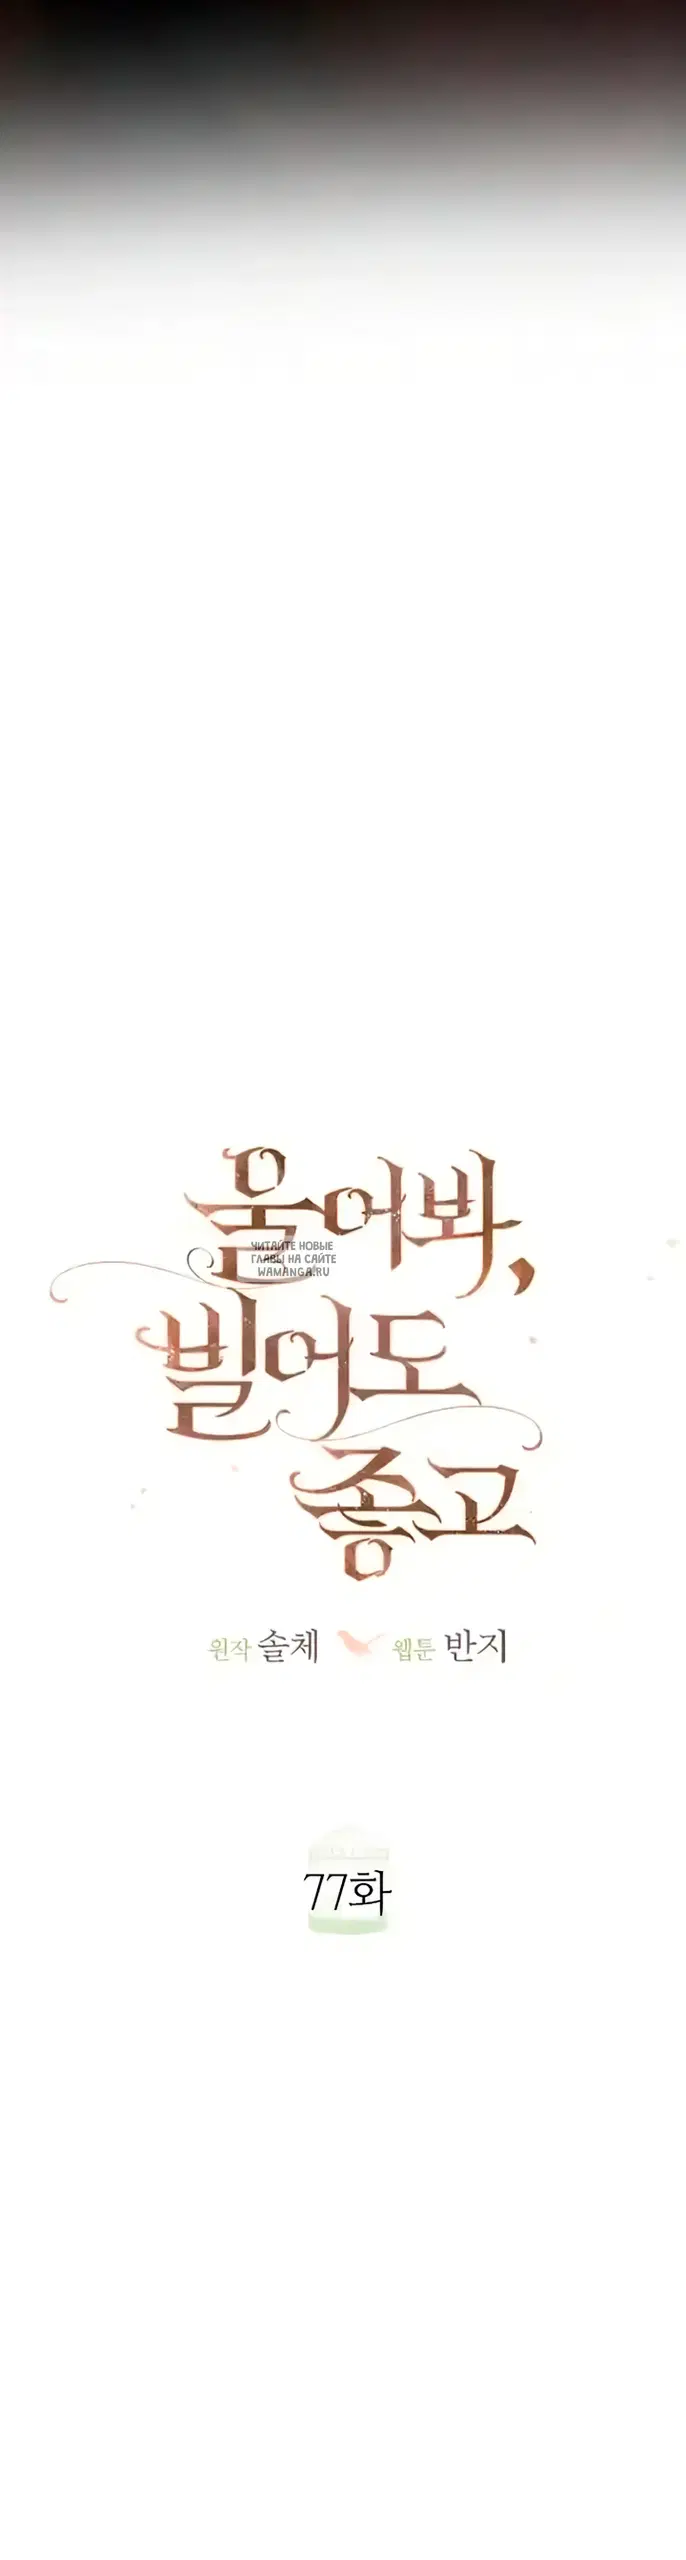 울어봐,
ЧИТАЙТЕ НОВЫЕ
ГЛАВЫ НА САЙТЕ
WAMANGA.RU
빌어도
좋고
원작 솔체 웹툰 반지
77화